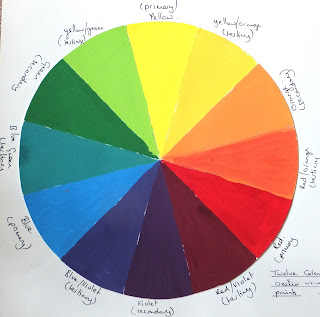 (primary)
Yellow.
yellow/orange
(tertiary)
Orange
(secondary)
Red/orange
(tertiary
Red
(primary
Red/Violet
(tertiary)
Violet
(secondary)
Blue/Violet
(tertiary)
Blue
(primary)
Blue Green
(tertiary
Green
(secondary
yellow/green
(tertiary)
Twelve Colou
paint